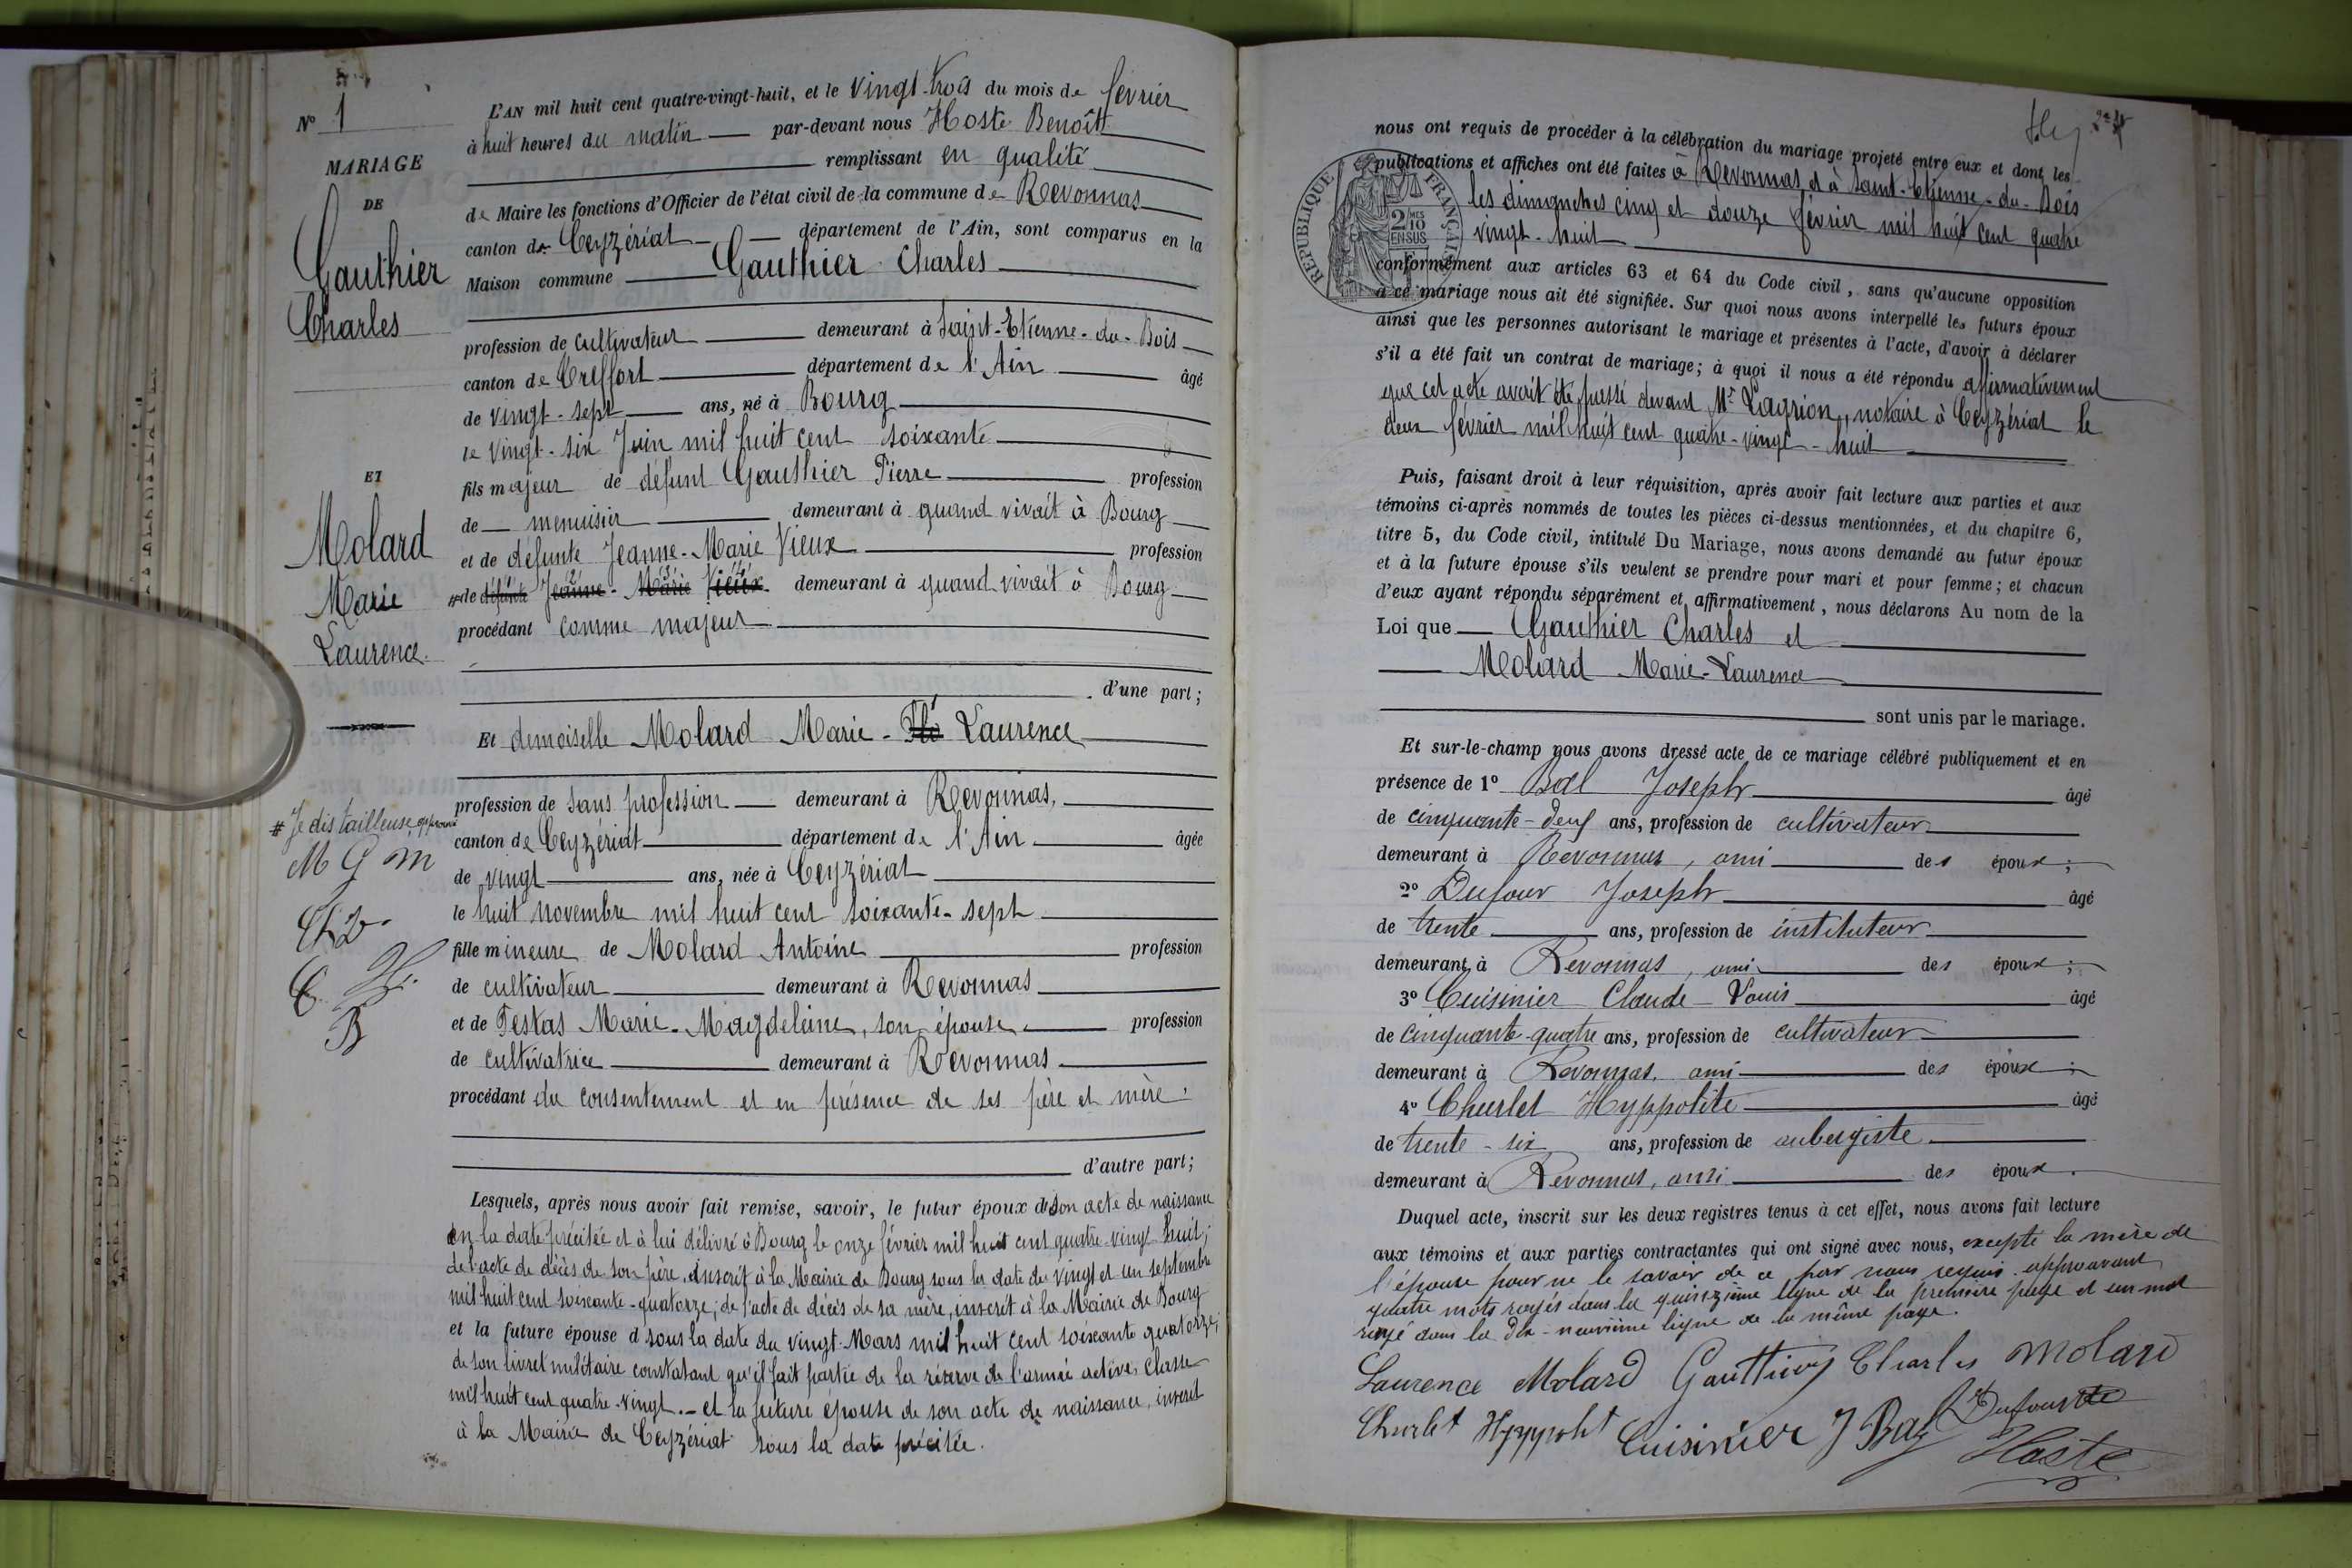 N° 1
MARIAGE
DE
Gauthier
Charles
ET
Molard
Marie
Laurence.
# Je dis tailleuse approuvé
M G m
C H
B
L'AN mil huit cent quatre-vingt-huit, et le vingt-trois du mois de février
à huit heures du matin par-devant nous Hoste Benoîtt
remplissant en qualité
de Maire les fonctions d'Officier de l'état civil de la commune de Revonnas
canton de Ceyzériat département de l'Ain, sont comparus en la
Maison commune Gauthier Charles
profession de cultivateur demeurant à Saint-Etienne-du-Bois
canton de Treffort département de l'Ain âgé
de vingt-sept ans, né à Bourg
le vingt-six Juin mil huit cent soixante
fils majeur de défunt Gauthier Pierre profession
de menuisier demeurant à quand vivait à Bourg
et de défunte Jeanne-Marie Vieux profession
# de défunte Jeanne-Marie Vieux demeurant à quand vivait à Bourg
procédant comme majeur
d'une part;
Et demoiselle Molard Marie-Flo Laurence
profession de sans profession demeurant à Revonnas,
canton de Ceyzériat département de l'Ain âgée
de vingt ans, née à Ceyzériat
le huit novembre mil huit cent soixante-sept
fille mineure de Molard Antoine profession
de cultivateur demeurant à Revonnas
et de Festas Marie-Magdeleine, son épouse profession
de cultivatrice demeurant à Revonnas
procédant du consentement et en présence de ses père et mère.
d'autre part;
Lesquels, après nous avoir fait remise, savoir, le futur époux de son acte de naissance
en la date précitée et à lui délivré à Bourg le onze février mil huit cent quatre-vingt huit;
de l'acte de décès de son père, inscrit à la Mairie de Bourg sous la date du vingt et un septembre
mil huit cent soixante-quatorze; de l'acte de décès de sa mère, inscrit à la Mairie de Bourg
et la future épouse d sous la date du vingt Mars mil huit cent soixante quatorze;
de son livret militaire constatant qu'il fait partie de la réserve de l'armée active, Classe
mil huit cent quatre-vingt.- et la future épouse de son acte de naissance, inscrit
à la Mairie de Ceyzériat sous la date précitée.
nous ont requis de procéder à la célébration du mariage projeté entre eux et dont les
publications et affiches ont été faites à Revonnas et à Saint-Etienne-du-Bois
les dimanches cinq et douze février mil huit cent quatre
vingt-huit
REPUBLIQUE FRANÇAISE
2 MES 10
EN SUS
conformément aux articles 63 et 64 du Code civil, sans qu'aucune opposition
à ce mariage nous ait été signifiée. Sur quoi nous avons interpellé les futurs époux
ainsi que les personnes autorisant le mariage et présentes à l'acte, d'avoir à déclarer
s'il a été fait un contrat de mariage; à quoi il nous a été répondu affirmativement
que cet acte avait été passé devant Mr Lagrion, notaire à Ceyzériat le
deux février mil huit cent quatre-vingt-huit
Puis, faisant droit à leur réquisition, après avoir fait lecture aux parties et aux
témoins ci-après nommés de toutes les pièces ci-dessus mentionnées, et du chapitre 6,
titre 5, du Code civil, intitulé Du Mariage, nous avons demandé au futur époux
et à la future épouse s'ils veulent se prendre pour mari et pour femme; et chacun
d'eux ayant répondu séparément et affirmativement, nous déclarons Au nom de la
Loi que Gauthier Charles et
Molard Marie-Laurence
sont unis par le mariage.
Et sur-le-champ nous avons dressé acte de ce mariage célébré publiquement et en
présence de 1° Bal Joseph âgé
de cinquante-deux ans, profession de cultivateur
demeurant à Revonnas, ami des époux;
2° Dufour Joseph âgé
de trente ans, profession de instituteur
demeurant à Revonnas, ami des époux;
3° Cuisinier Claude-Louis âgé
de cinquante-quatre ans, profession de cultivateur
demeurant à Revonnas, ami des époux;
4° Churlet Hyppolite âgé
de trente-six ans, profession de aubergiste
demeurant à Revonnas, ami des époux.
Duquel acte, inscrit sur les deux registres tenus à cet effet, nous avons fait lecture
aux témoins et aux parties contractantes qui ont signé avec nous, excepté la mère de
l'épouse pour ne le savoir de ce par nous requis. approuvant
quatre mots rayés dans la quinzième ligne de la première page et un mot
rayé dans la dix-neuvième ligne de la même page.
Laurence Molard Gauthier Charles Molard
Churlet Hyppolit Cuisinier J Bal Dufour
Hoste